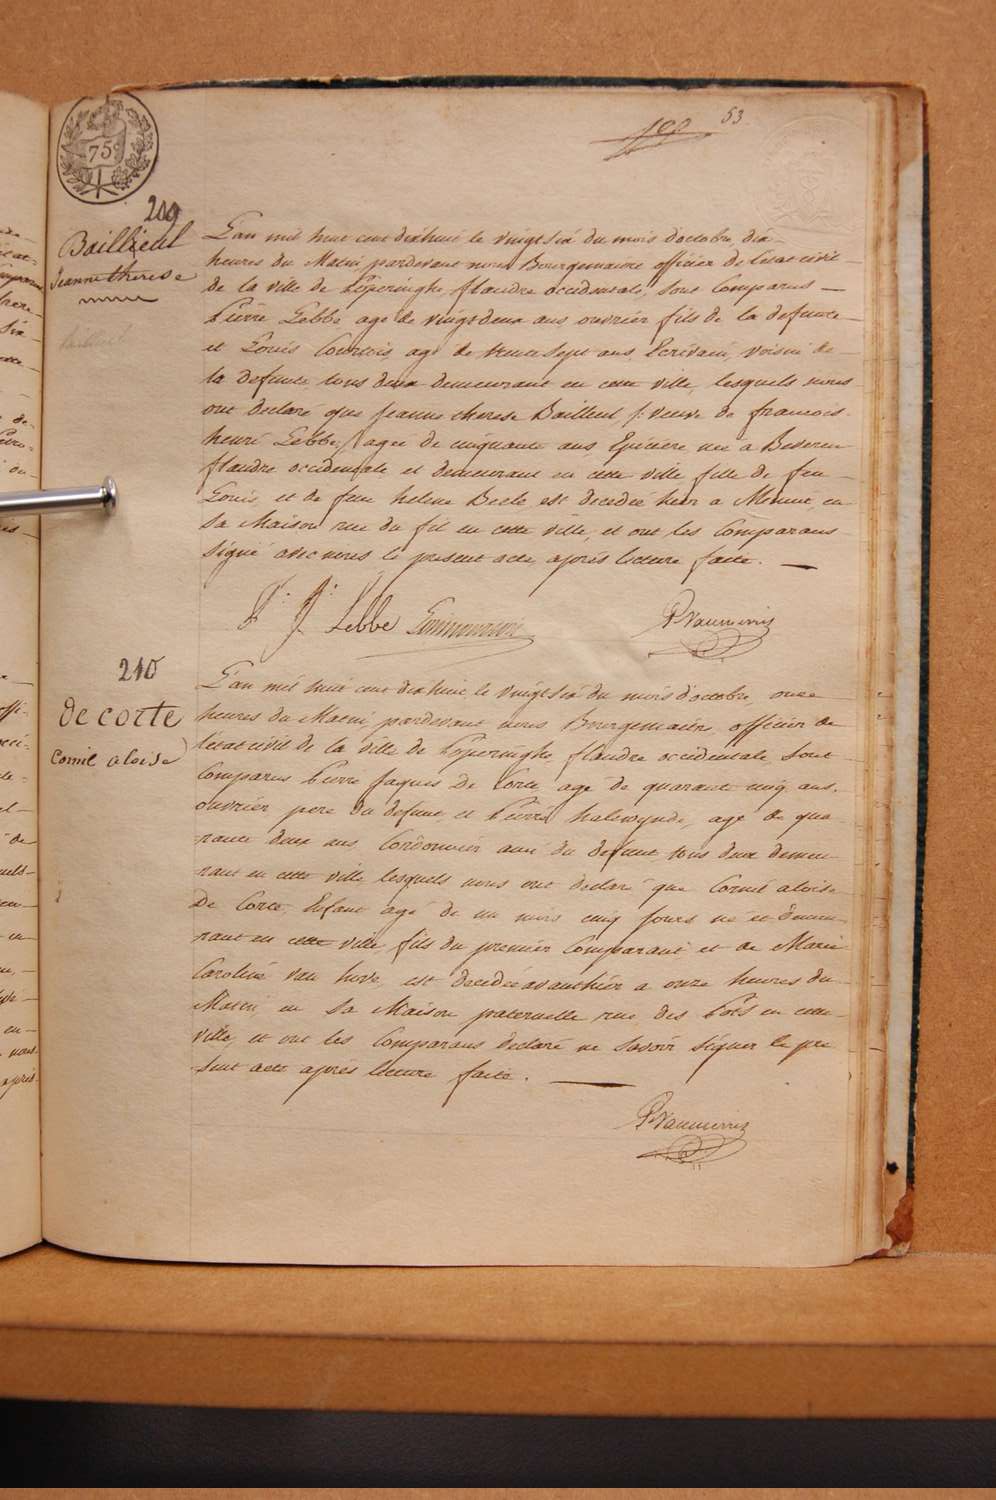 53
75c
209
Baillieul
Jeanne therese
L'an mil huit cent dixhuit le vingtsix du mois d'octobre, dix
heures du Matin, pardevant nous Bourgemaitre officier de l'etat civil
de la ville de Poperinghe, flandre occidentale, sont Comparus —
Pierre Lebbe age de vingtdeux ans ouvrier fils de la defunte
et Louis Courtois age de trente sept ans Ecrivain, voisin de
la defunte tous deux demeurant en cette ville, lesquels nous
ont declaré que Jeanne therese Bailleul /: veuve de francois
henri Lebbe, :/ agée de cinquante ans Epiciere née a
flandre occidentale et demeurant en cette ville fille de feu
Louis et de feue helene est decedée hier a Minuit, en
sa Maison rue du fil en cette ville, et ont les Comparans
signé avec nous le present acte, après lecture faite. —
P. J. Lebbe
210
de corte
Cornil aloise
L'an mil huit cent dixhuit le vingtsix du mois d'octobre, onze
heures du Matin, pardevant nous Bourgemaitre, officier de
l'etat civil de la ville de Poperinghe, flandre occidentale, sont
Comparus Pierre Jaques De Corte, age de quarante cinq ans,
ouvrier pere du defunt, et Pierre, age de qua-
rante deux ans, Cordonnier ami du defunt tous deux demeu-
rant en cette ville lesquels nous ont declaré que Cornil aloise
De Corte, Enfant agé de un mois cinq jours né et Demeu-
rant en cette ville, fils du premier Comparant et de Marie
Caroline van, est decedée avanthier a onze heures du
Matin, en sa Maison paternelle rue des Pots en cette
ville, et ont les Comparans declaré ne savoir signer le pre
sent acte après lecture faite. —